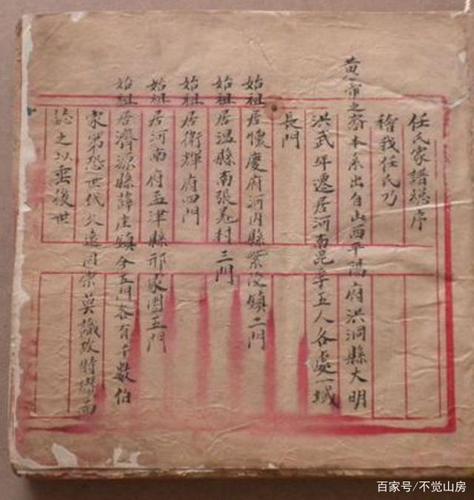 任氏家譜總序
稽我任氏乃
黃帝之裔本系出自山西平陽府洪洞縣大明
洪武年遷居河南昆季五人各處一域
長門
始祖居懷慶府河內縣紫陵鎮二門
始祖居温縣南張羌村三門
始祖居衛輝府四門
始祖居河南府孟津縣邢家園五門
始祖居濟源縣薛庄鎮今五門各有千數伯
家第恐世代久遠因崇莫徵故特譜而
誌之以垂後世
百家号/不觉山房